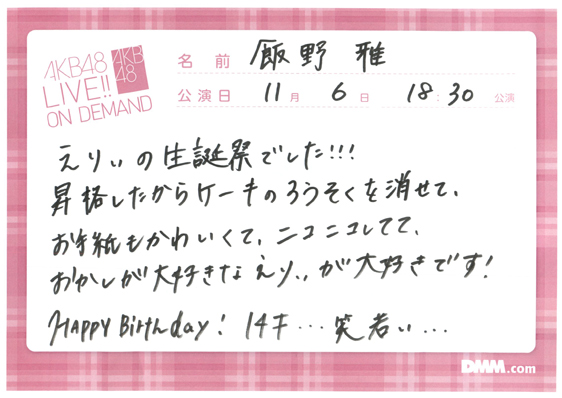 AKB48
LIVE!!
ON DEMAND
AKB
48
名前 飯野 雅
公演日 11月 6日 18:30 公演
えりぃの生誕祭でした!!!
昇格したからケーキのろうそくを消せて、
お手紙もかわいくて、ニコニコしてて、
おかしが大好きなえりぃが大好きです!
HAPPY Birthday! 14才…笑若い…
DMM.com